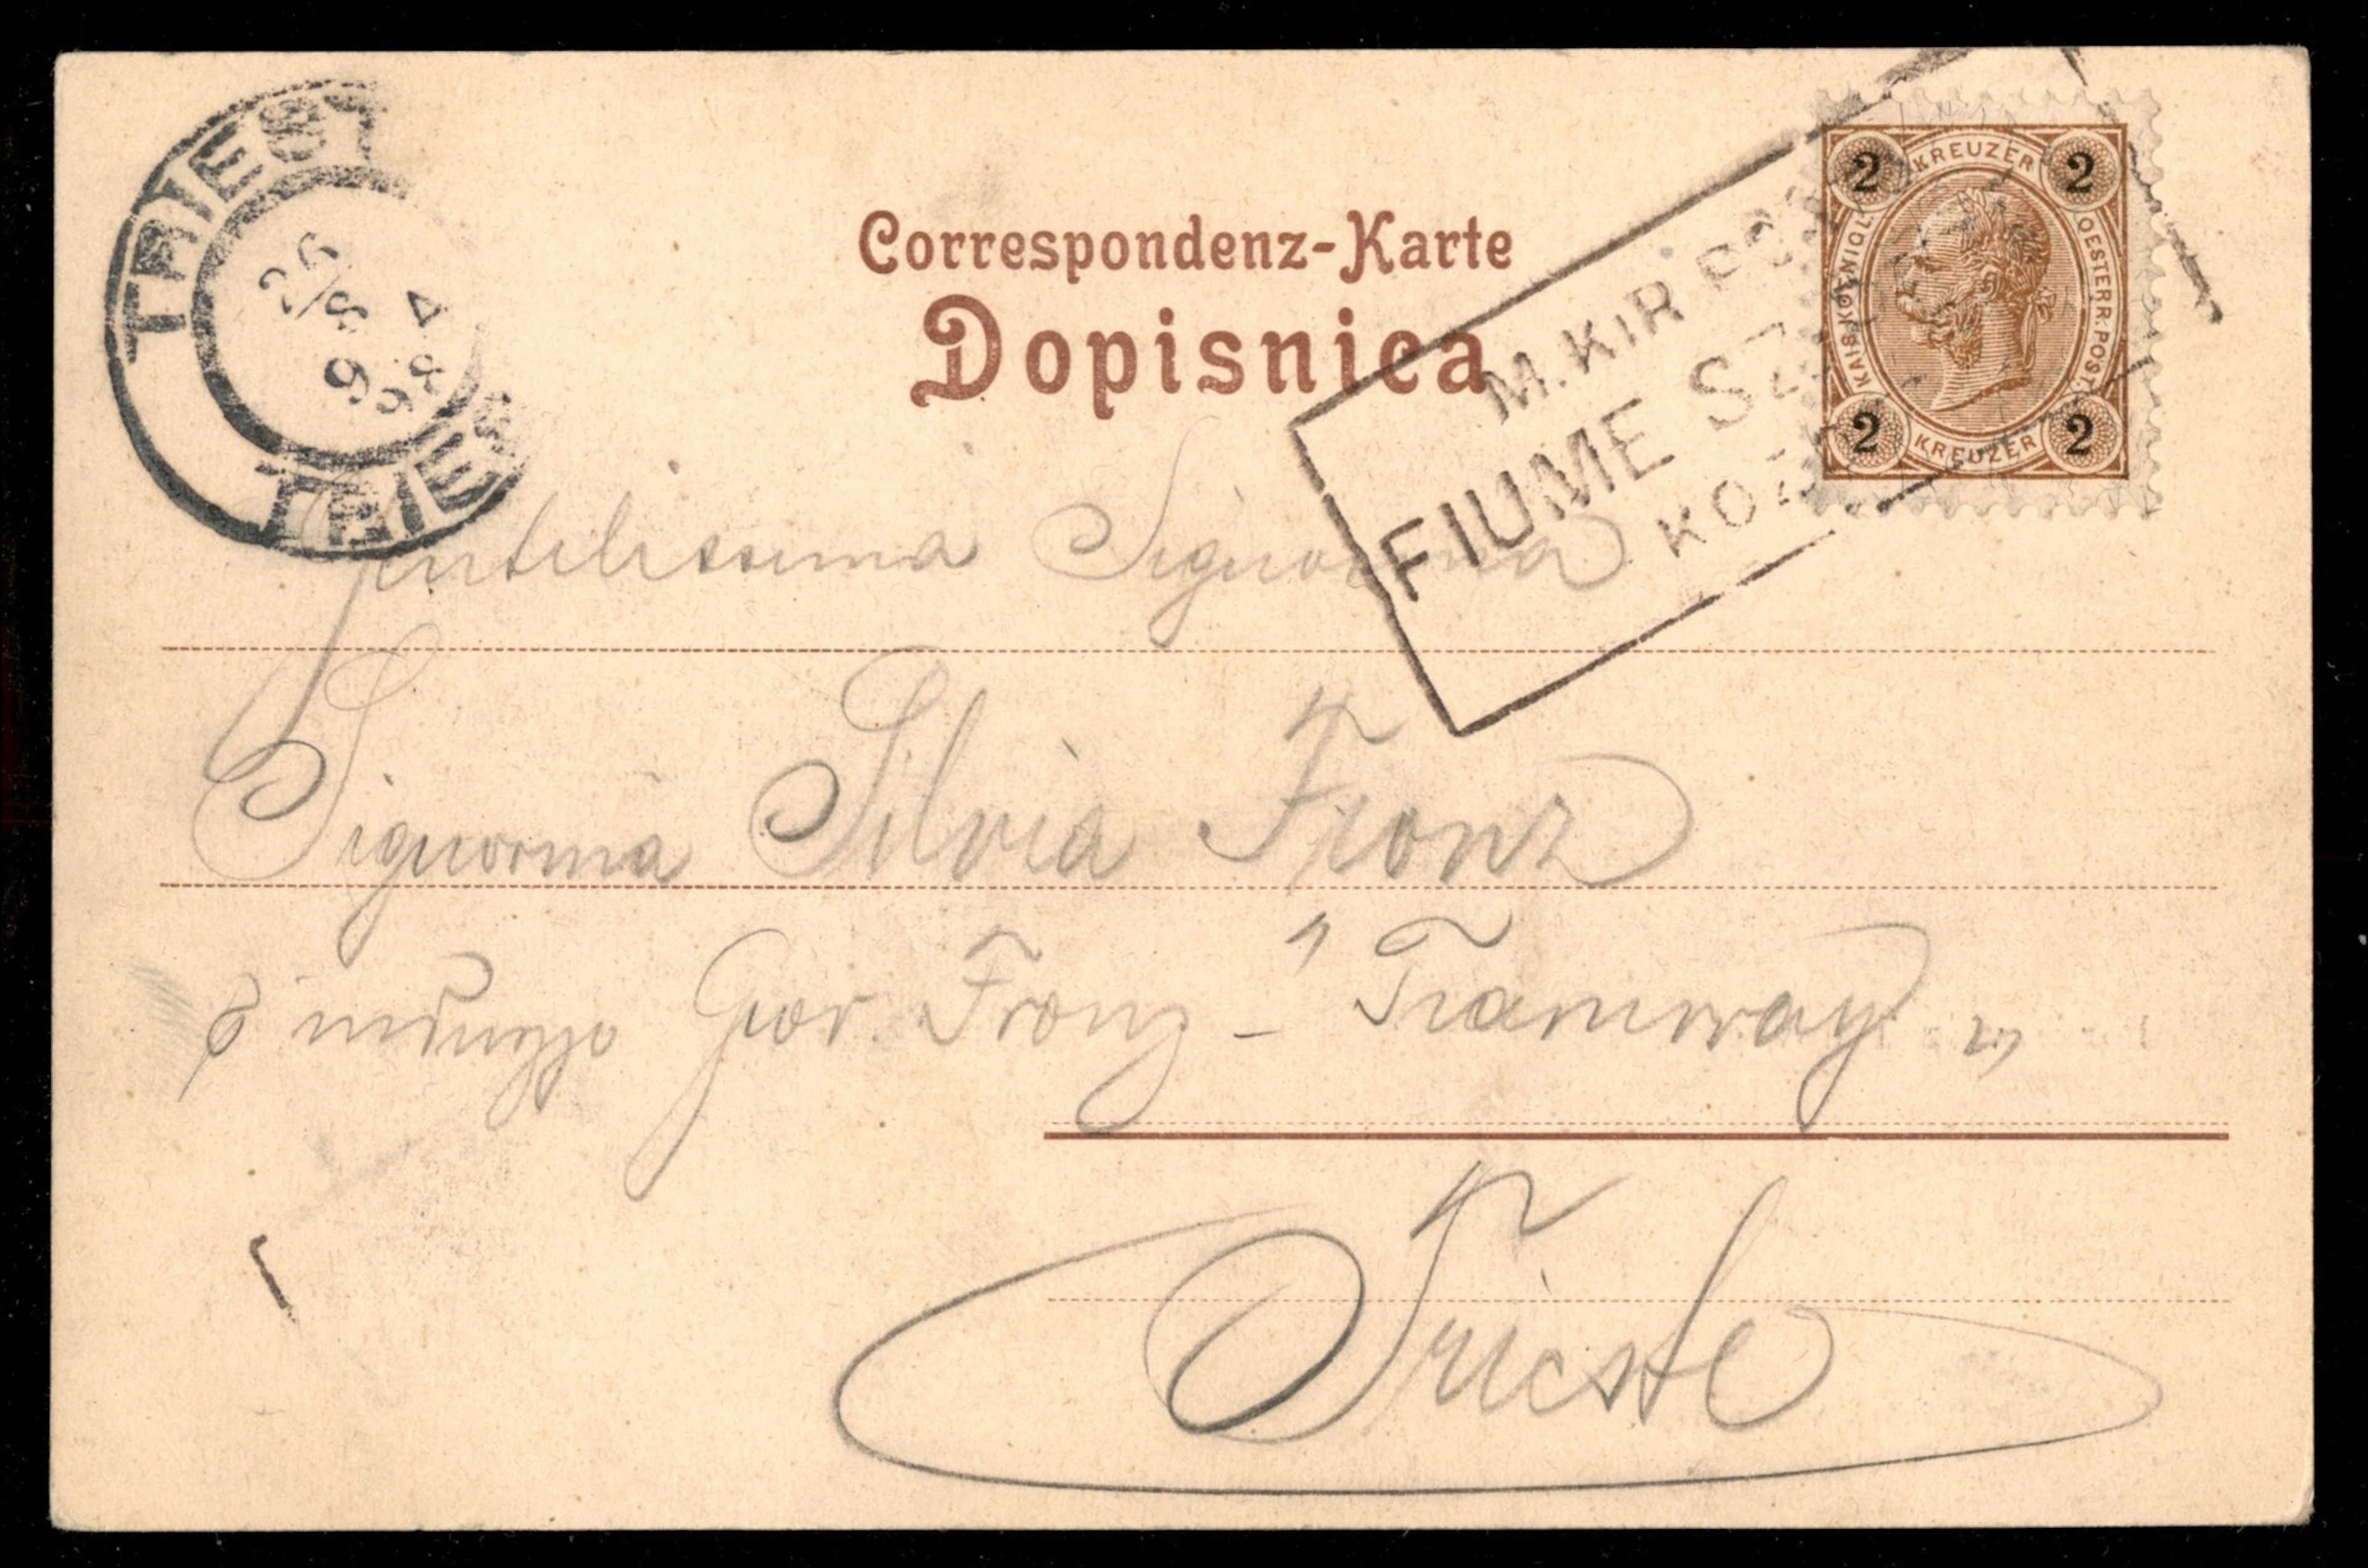 TRIEST
26/8 4
9 98
TRIES
Correspondenz-Karte
Dopisnica
M. KIR PO
FIUME SZ
KOZ
2 KREUZER 2
KAIS. KOENIGL.
OESTERR. POST.
2 KREUZER 2
Gentilissima Signorina
Signorina Silvia Tronz
Giov. Tronz - "Tramway"
Trieste